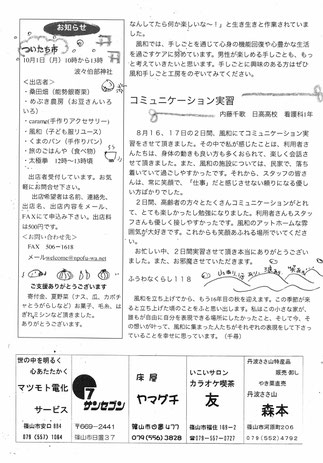 お知らせ
ついたち市
10月1日（月）10時から13時
波々伯部神社
＜出店者＞
・桑田畑（能勢銀寄栗）
・めぶき農房（お豆さんいろいろ）
・caramq(手作りアクセサリー)
・風和（子ども服リユース）
・くまのパン（手作りパン）
・旅のごはんや（食べ物）
・太極拳　12時～13時頃
出店者受付しています。お気軽にお合せ下さい。
出店希望者は名前、連絡先、出店名、出店内容をメール、FAXにて申込み下さい。出店料は500円です。
＜お問い合わせ先＞
FAX　506－1618
ご支援ありがとうございます
寄付金、夏野菜（ナス、瓜、カボチャとうがらしなど）お菓子、毛糸、はぎれミシンなど頂きました。
ありがとうございます。
なんしてたら何か楽しいな～！」と生き生きと作業されていました。
風和では、手しごとを通じて心身の機能回復や心豊かな生活を過ごすケアに努めています。男性が楽しめる手しごとも、もっと考えていきたいと思います。手しごとに興味のある方はぜひ風和手しごと工房をのぞいてみてください。
コミュニケーション実習
内藤千歌　日高高校　看護科1年
8月16、17日の2日間、風和にてコミュニケーション実習をさせて頂きました。その中で私が感じたことは、利用者さんたちは、身体の動きも良い方も多くおられて、楽しく会話させて頂きました。また、風和の施設については、民家で、落ち着いていて過ごしやすかったです。それから、スタッフの皆さんは、常に笑顔で、「仕事」だと感じさせない頼りになる優しい方ばかりでした。
2日間、高齢者の方々とたくさんコミュニケーションがとれて、とても楽しかったし勉強になりました。利用者さんもスタッフさんも優しく接しやすかったです。風和のアットホームな雰囲気が大好きです。これからも笑顔あふれる場所でいてください。
お忙しい中、2日間実習させて頂き本当にありがとうございました。また、お邪魔させていただきます。
ふうわなくらし118
風和を立ち上げてから、もう16年目の秋を迎えます。この季節が来ると立ち上げた頃のことをふと思い出します。私はこの小さな家が、誰もが自由に自分を表現できる場所にしたかったこと、そして今、その想いが叶って、風和に集まった人たちがそれぞれの表現をして下さっていることを幸せに思っています。（千尋）
世の中を明るく
心あたたかく
マツモト電化
サービス
篠山市安口884
079（557）1084
7
サンセブン
〒669－2441
篠山市日置37
床屋
ヤマグチ
篠山市日置477
079(556)3828
いこいサロン
カラオケ喫茶
友
篠山市福住188－2
☎079－557－3727
丹波ささ山特産品
販売卸し
やき栗直売
丹波ささ山
森本
篠山市河原町206
079（552）4792